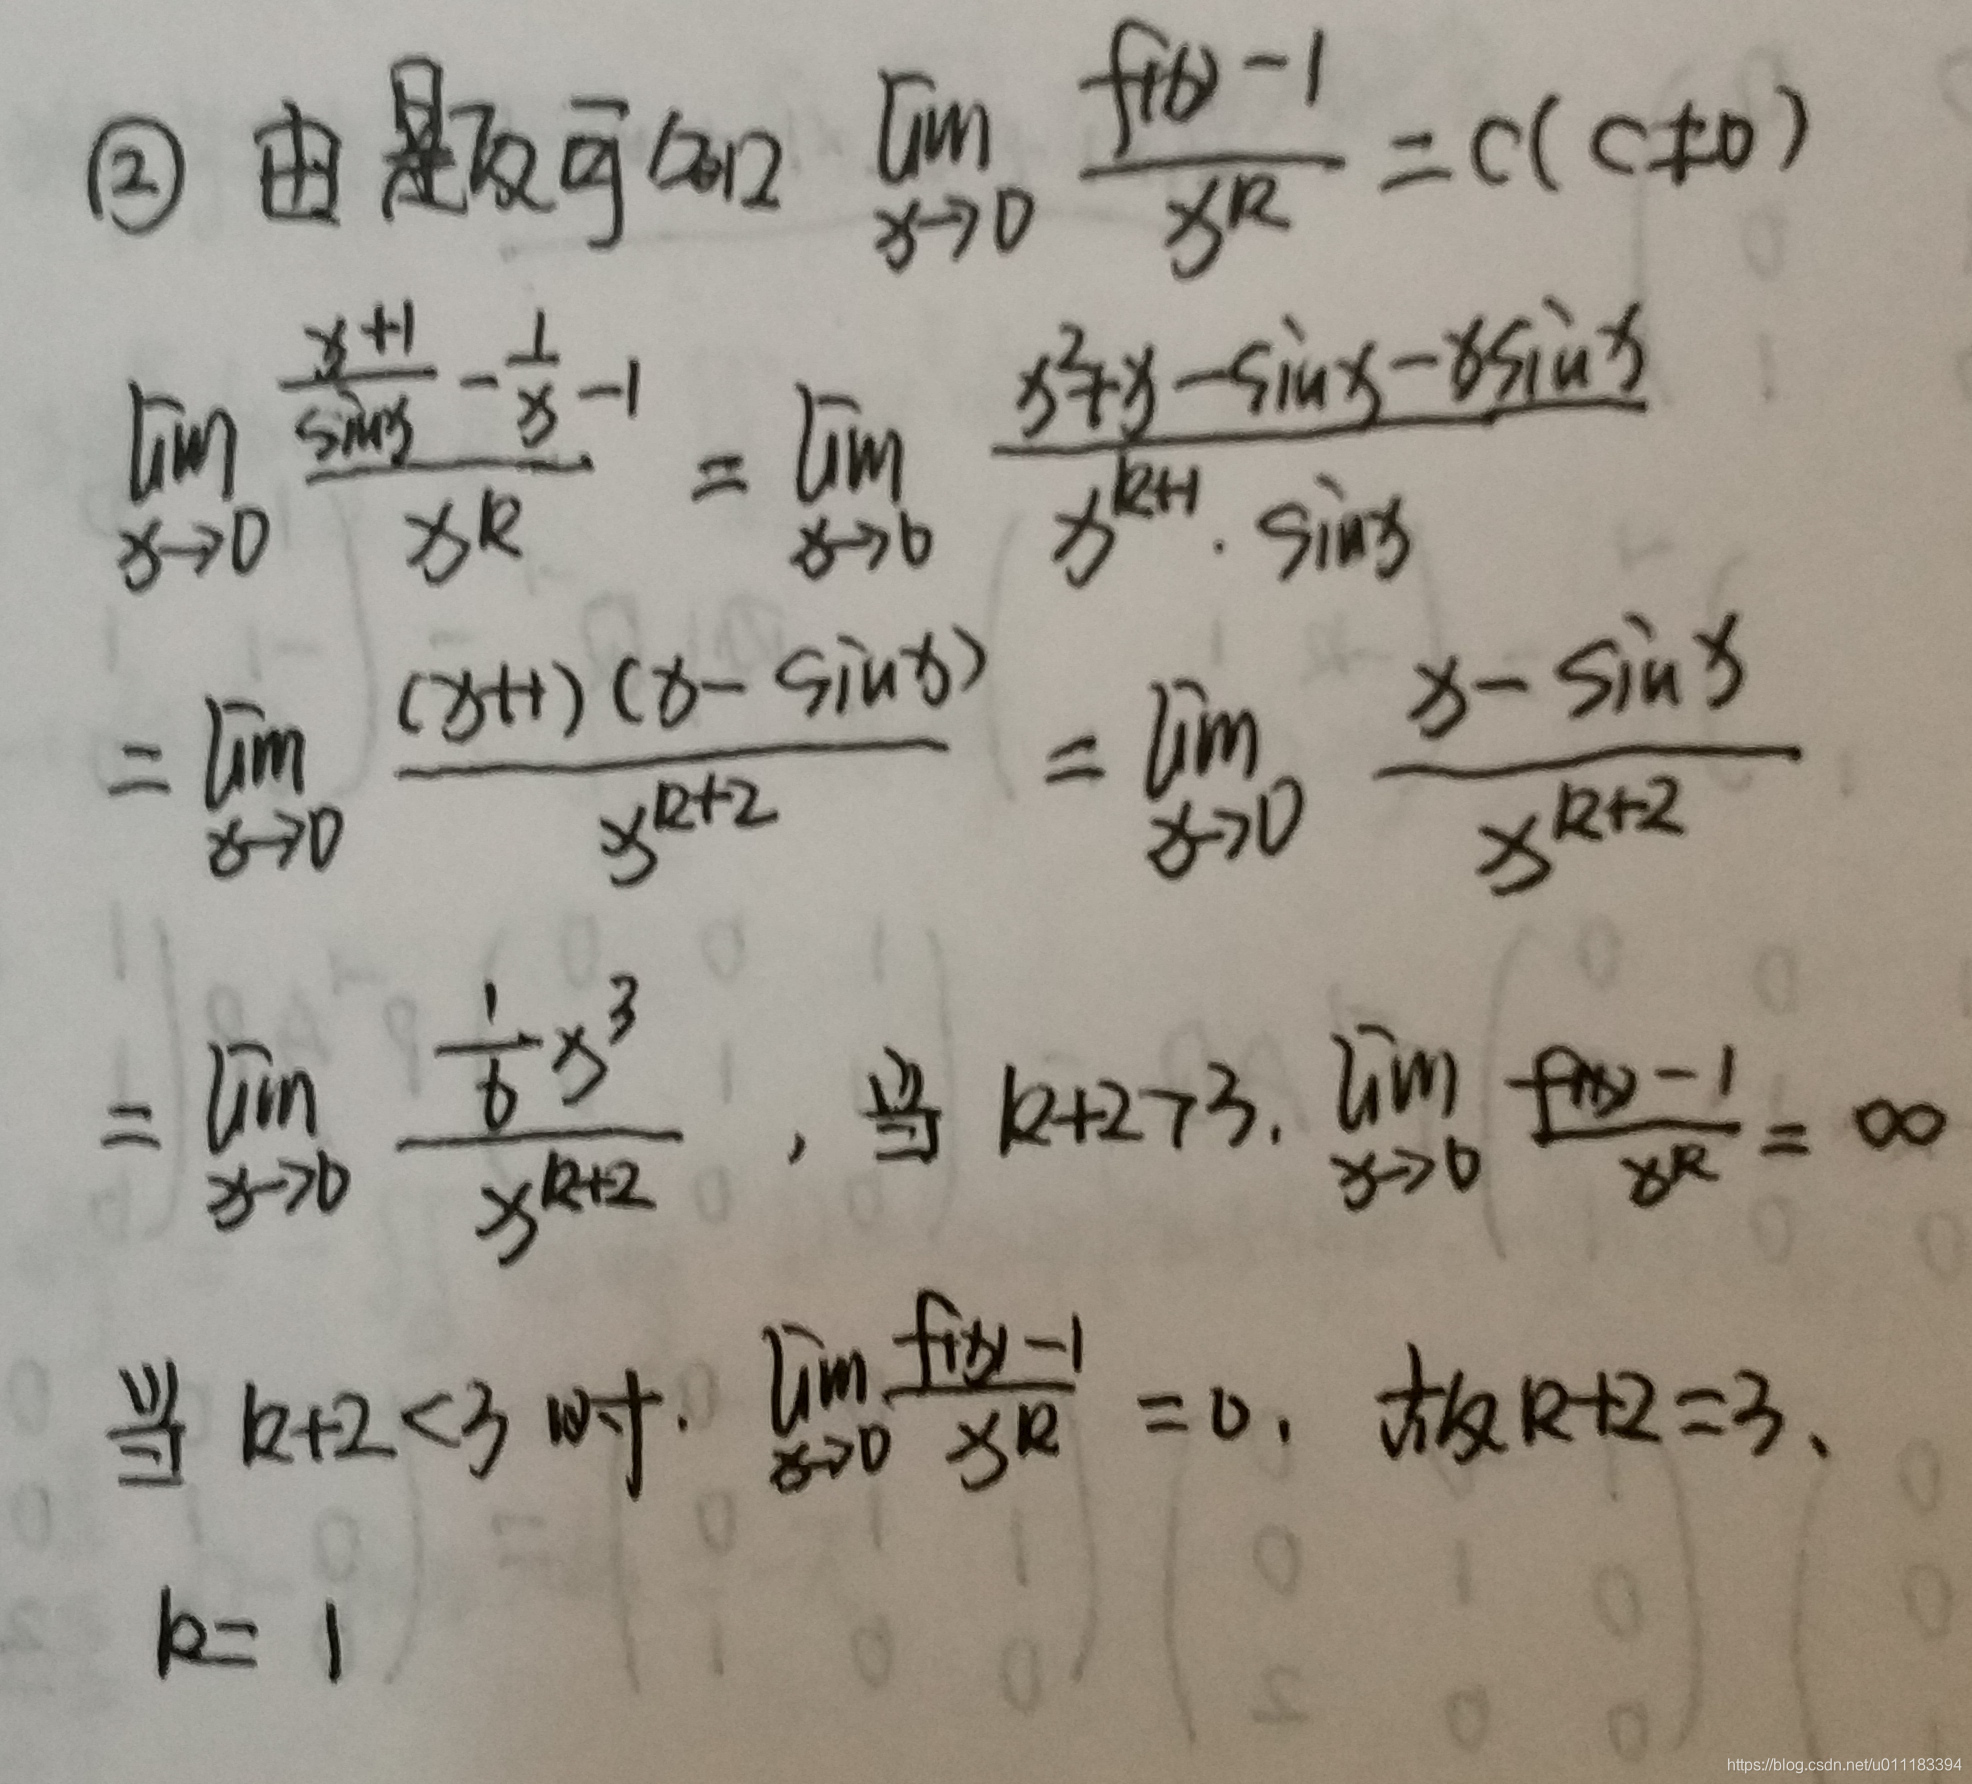 ② 由题设可知 lim_{x→0} (f(x)-1)/x^k = C (C≠0)
lim_{x→0} ((x+1)/sinx - 1/x - 1)/x^k = lim_{x→0} (x²+x-sinx-xsinx)/(x^{k+1}·sinx)
= lim_{x→0} (x+1)(x-sinx)/x^{k+2} = lim_{x→0} (x-sinx)/x^{k+2}
= lim_{x→0} (1/6 x³)/x^{k+2}, 当 k+2>3, lim_{x→0} (f(x)-1)/x^k = ∞
当 k+2<3 时, lim_{x→0} (f(x)-1)/x^k = 0, 故k+2=3、
k= 1
https://blog.csdn.net/u011183394